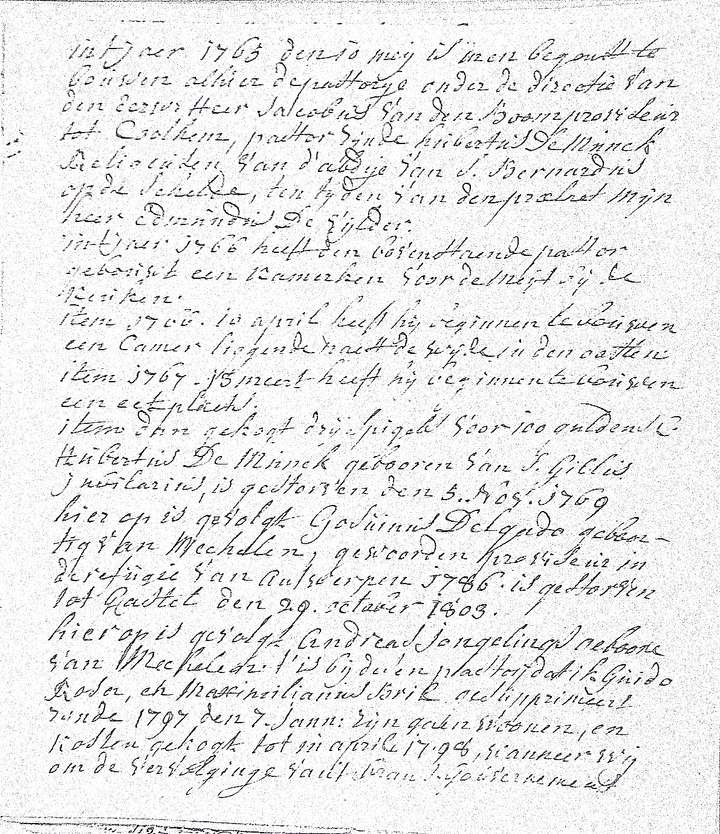 int jaer 1765 den 10 meij is men begonst te
bouwen alhier de pastorije onder de directie van
den eerw: Heer Jacobus van den Boom proviseur
tot Coolhem, pastor sijnde hubertus De Minck
Religieusen van d'abdije van S. Bernardus
op de Schelde, ten tijden van den prelaet mijn
heer Edmundus De
int jaer 1766 heeft den bovenstaende pastor
gebouwt een kamerken voor de meijt bij de
keuken.
item 1766. 10 april heeft hij beginnen te bouwen
een Camer liggende naest de in den oosten
item 1767. 15 meert heeft hij beginnen te bouwen
een eet plaets.
item dan gekogt drij spigels voor 100 guldens C
Hubertus De Minck gebooren van S. Gillis
Jubilarius, is gestorven den 5. Nov. 1769
hier op is gevolgt Gosuinus Delgado geboor-
tig van Mechelen, geworden proviseur in
de refugie van Antwerpen 1786. is gestorven
tot Gastel den 29. october 1803.
hier op is gevolgt Andreas Jongelings geboore
van Mechelen. t'is bij de'en pastoor dat ik Guido
en Maximilianus Brik gesupprimeert
zijnde 1797 den 7. Jann: zijn gaen woonen, en
kosten gekogt tot in april 1798, wanneer wij
om de vervolginge van't Frans Gouvernement